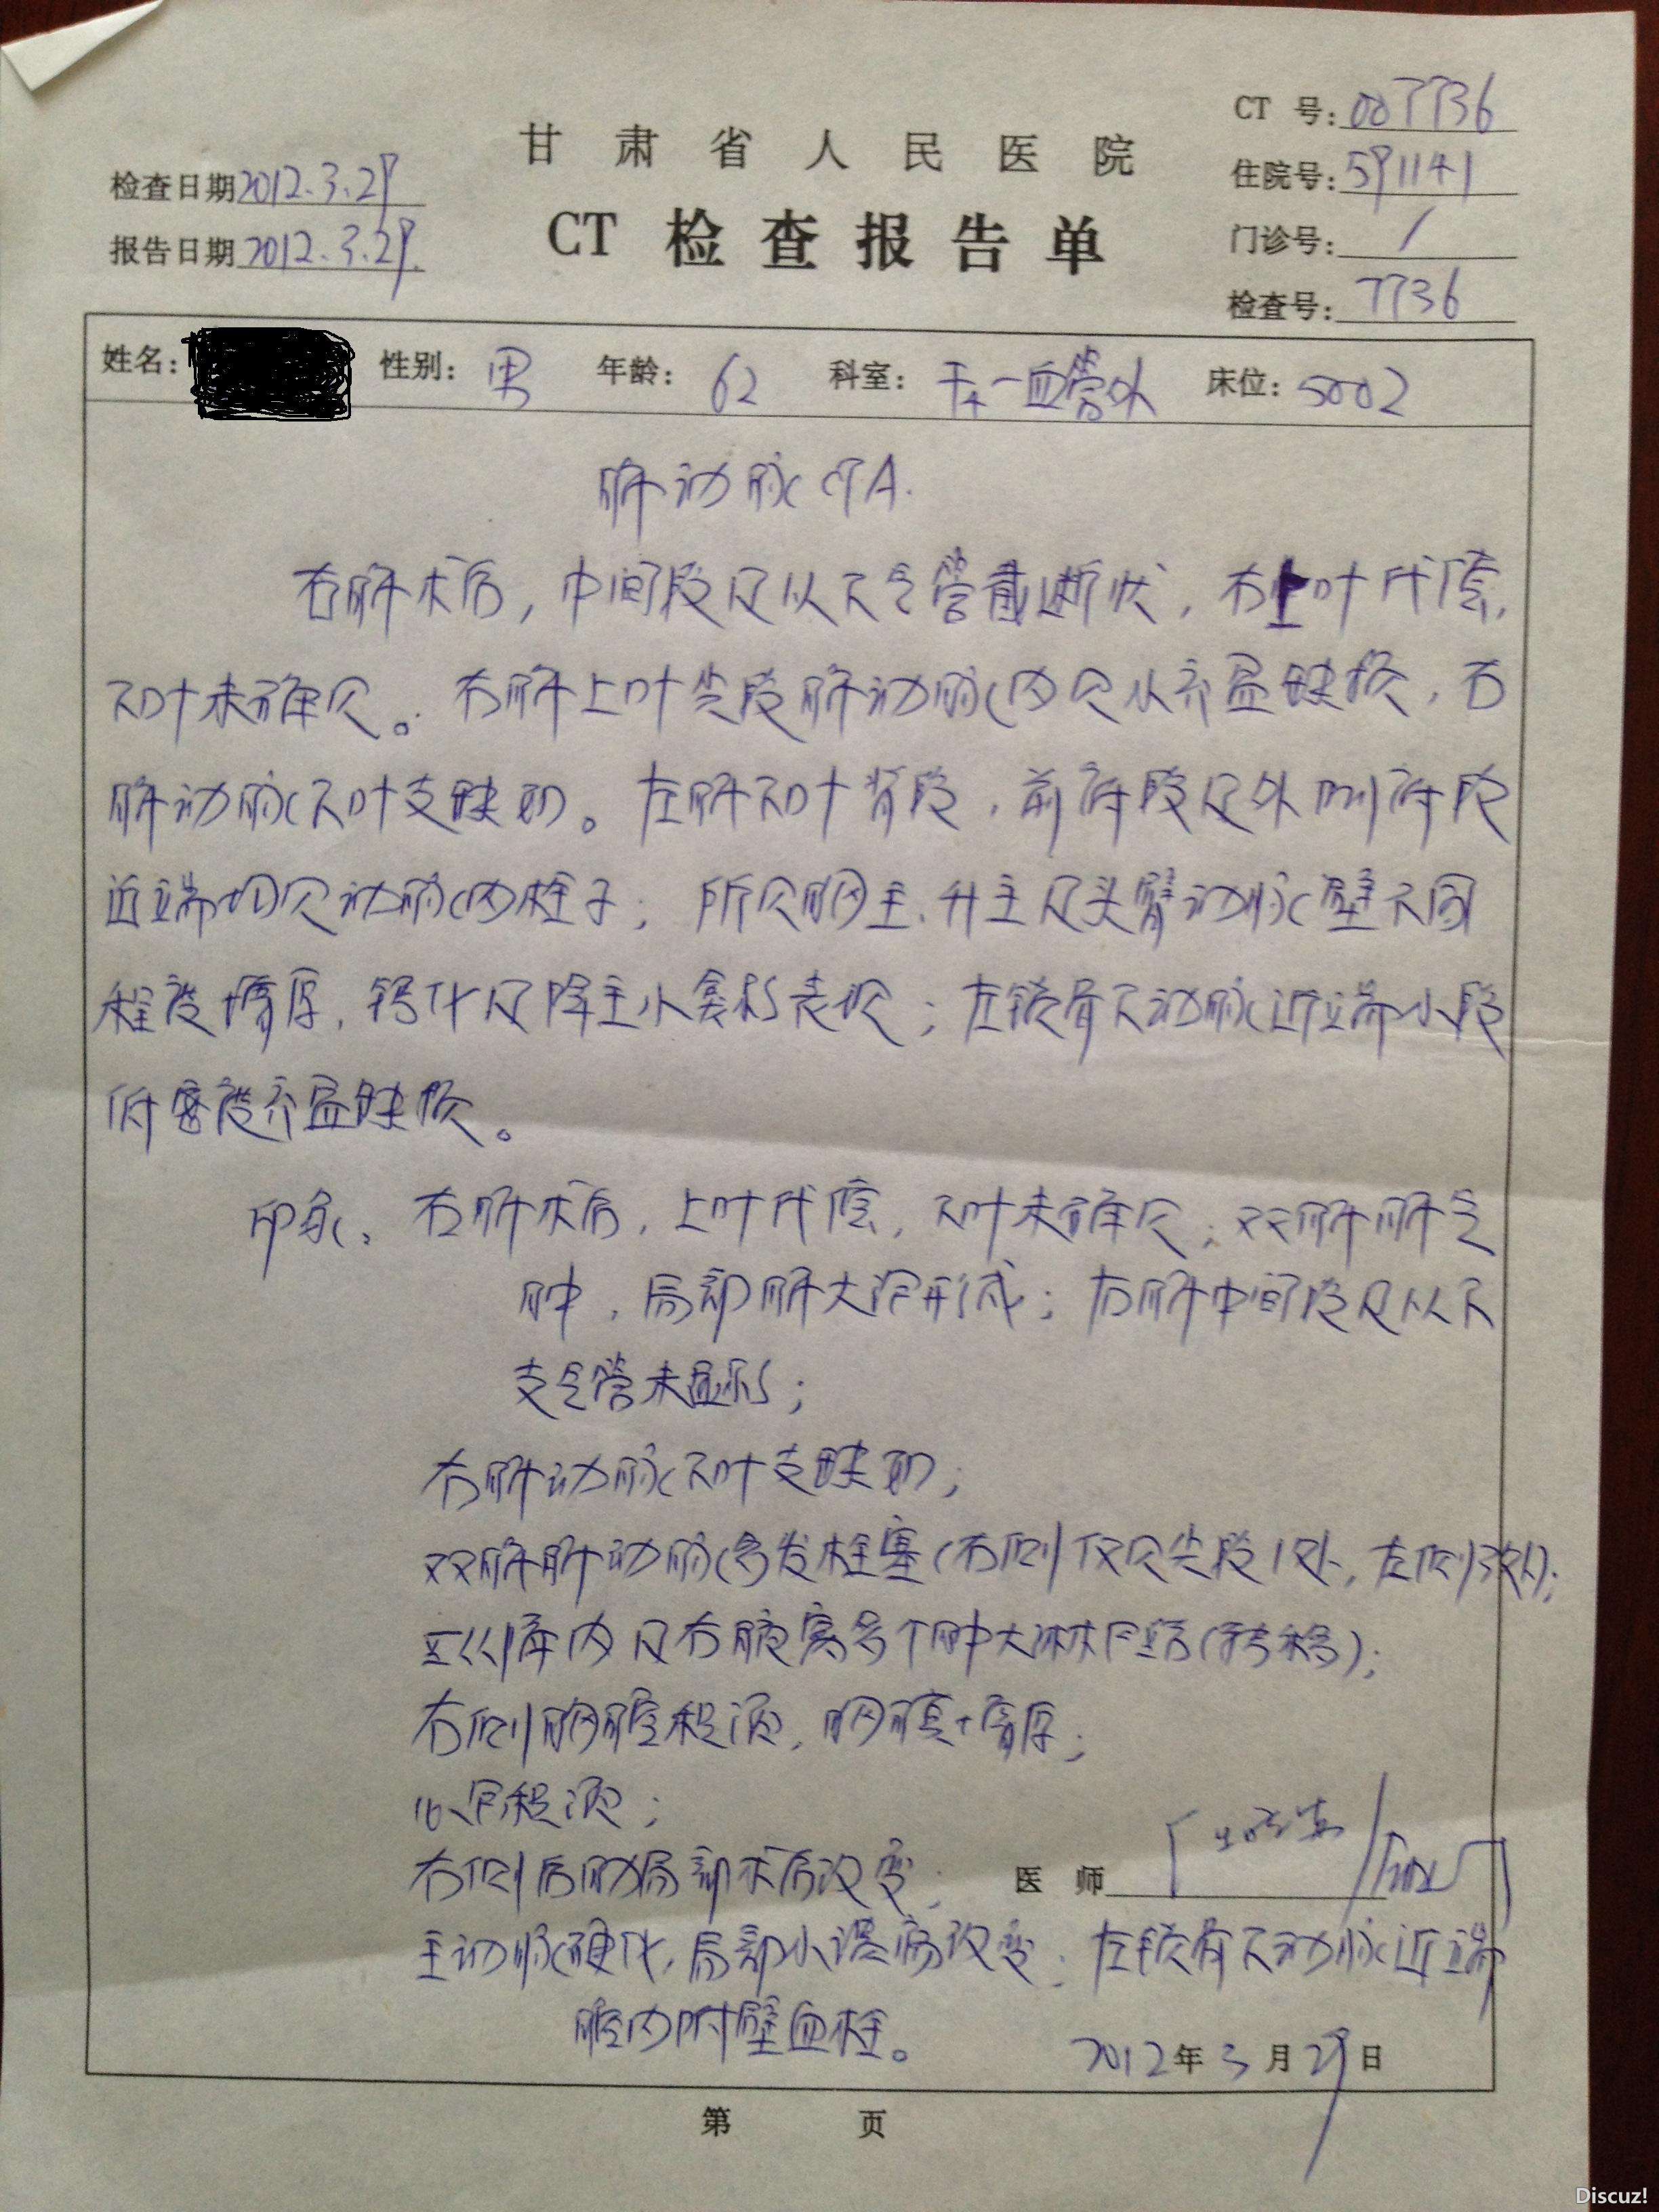 甘肃省人民医院
CT 检查报告单
检查日期 2012.3.29
报告日期 2012.3.29.
CT 号: 007736
住院号: 591141
门诊号: /
检查号: 7736
姓名: 性别: 男 年龄: 62 科室: 干一血管外 床位: 5002
肺动脉CTA.
右肺术后，中间段及以下气管截断状，右上叶代偿，
下叶未确见。右肺上叶尖段肺动脉内见小充盈缺损，右
肺动脉下叶支缺如。左肺下叶背段，前底段及外侧底段
近端均见动脉内栓子；所见胸主、升主及头臂动脉壁不同
程度增厚，钙化及降主小龛影表现；左锁骨下动脉近端小段
低密度充盈缺损。
印象：右肺术后，上叶代偿，下叶未确见；双肺肺气
肿，局部肺大泡形成；右肺中间段及以下
支气管未显影；
右肺动脉下叶支缺如；
双肺肺动脉多发栓塞（右侧仅见尖段1处，左侧3处）；
纵膈内及右腋窝多个肿大淋巴结（转移）；
右侧胸腔积液，胸膜增厚；
心包积液；
右侧后肋局部术后改变；
医师
主动脉硬化，局部小溃疡改变；左锁骨下动脉近端
腔内附壁血栓。
2012年3月29日
第 页
Discuz!